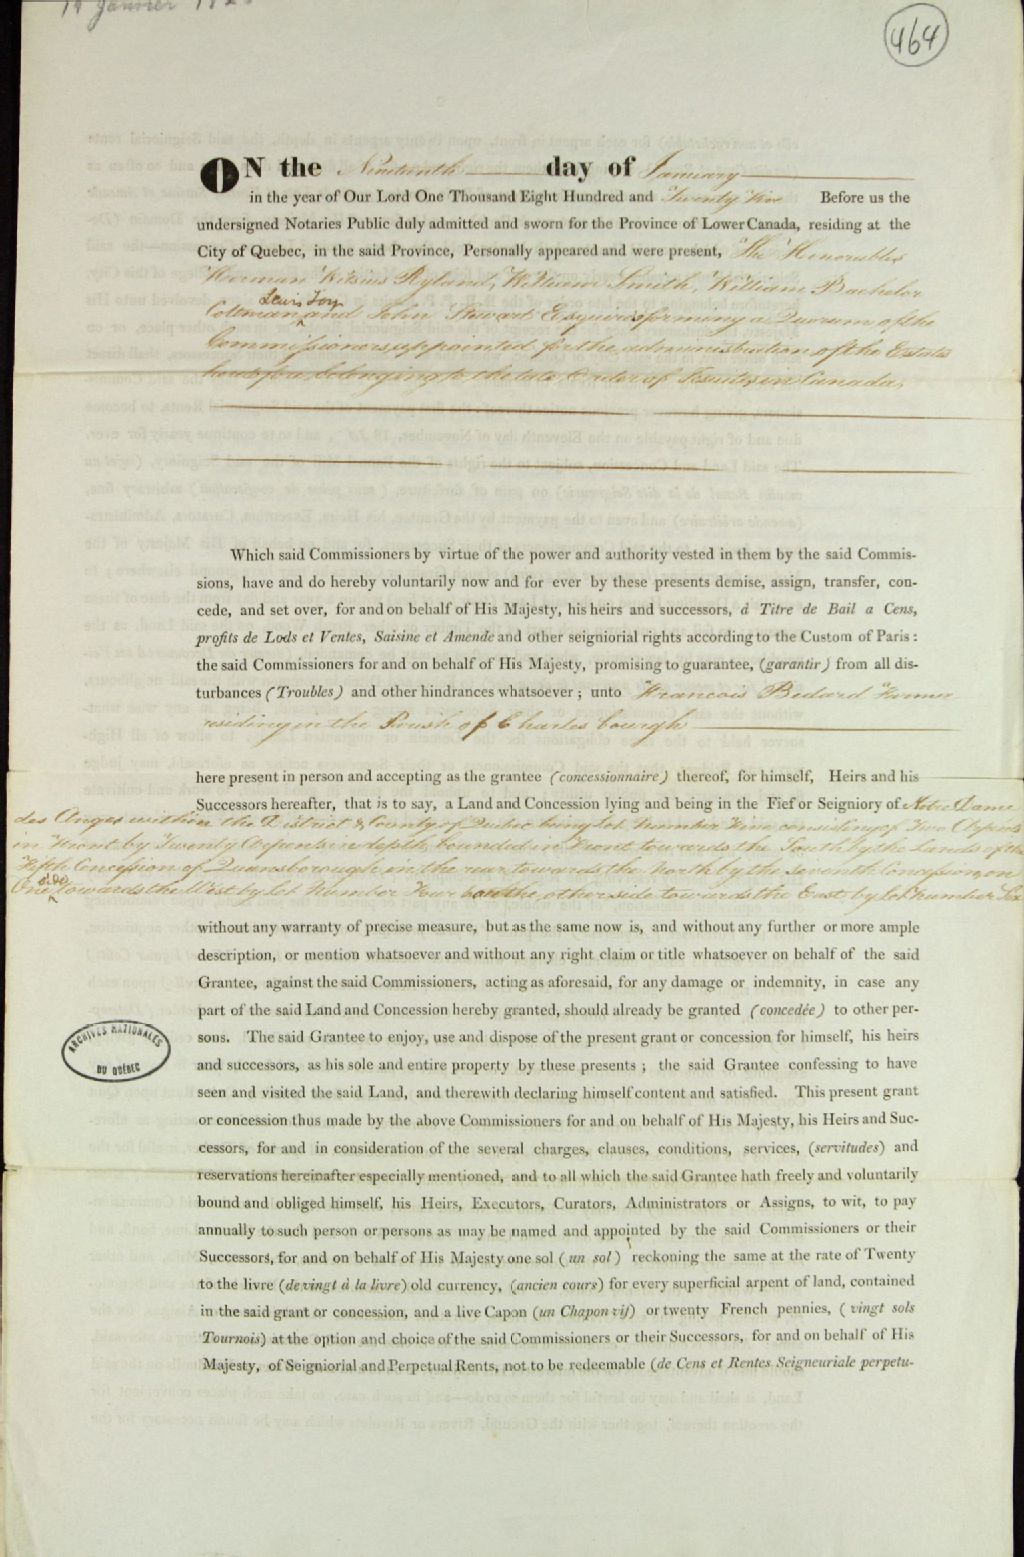 19 Janvier
464
ON the Nineteenth day of January
in the year of Our Lord One Thousand Eight Hundred and Twenty Five Before us the
undersigned Notaries Public duly admitted and sworn for the Province of Lower Canada, residing at the
City of Quebec, in the said Province, Personally appeared and were present, The Honorables
Herman Witsius Ryland, William Smith, William Bachelor
Lewis Foy
Coltman, and John Stewart Esquires forming a Quorum of the
Commissioners appointed for the administration of the Estates
heretofore belonging to the late Order of Jesuits in Canada,
Which said Commissioners by virtue of the power and authority vested in them by the said Commis-
sions, have and do hereby voluntarily now and for ever by these presents demise, assign, transfer, con-
cede, and set over, for and on behalf of His Majesty, his heirs and successors, à Titre de Bail a Cens,
profits de Lods et Ventes, Saisine et Amende and other seigniorial rights according to the Custom of Paris :
the said Commissioners for and on behalf of His Majesty, promising to guarantee, (garantir) from all dis-
turbances (Troubles) and other hindrances whatsoever ; unto Francois Bedard Farmer
residing in the Parish of Charlesbourgh
here present in person and accepting as the grantee (concessionnaire) thereof, for himself, Heirs and his
Successors hereafter, that is to say, a Land and Concession lying and being in the Fief or Seigniory of Notre Dame
des Anges within the District & County of Quebec being Lot Number Five consisting of Two Arpents
in Front by Twenty Arpents in depth, bounded in Front towards the South by the Lands of the
Fifth Concession of Queensborough in the rear towards the North by the Seventh Concession, on
side
One towards the West by Lot Number Four on the other side towards the East by Lot Number Six
without any warranty of precise measure, but as the same now is, and without any further or more ample
description, or mention whatsoever and without any right claim or title whatsoever on behalf of the said
Grantee, against the said Commissioners, acting as aforesaid, for any damage or indemnity, in case any
part of the said Land and Concession hereby granted, should already be granted (concedée) to other per-
sons. The said Grantee to enjoy, use and dispose of the present grant or concession for himself, his heirs
and successors, as his sole and entire property by these presents ; the said Grantee confessing to have
seen and visited the said Land, and therewith declaring himself content and satisfied. This present grant
or concession thus made by the above Commissioners for and on behalf of His Majesty, his Heirs and Suc-
cessors, for and in consideration of the several charges, clauses, conditions, services, (servitudes) and
reservations hereinafter especially mentioned, and to all which the said Grantee hath freely and voluntarily
bound and obliged himself, his Heirs, Executors, Curators, Administrators or Assigns, to wit, to pay
annually to such person or persons as may be named and appointed by the said Commissioners or their
Successors, for and on behalf of His Majesty one sol (un sol) reckoning the same at the rate of Twenty
to the livre (de vingt à la livre) old currency, (ancien cours) for every superficial arpent of land, contained
in the said grant or concession, and a live Capon (un Chapon vif) or twenty French pennies, (vingt sols
Tournois) at the option and choice of the said Commissioners or their Successors, for and on behalf of His
Majesty, of Seigniorial and Perpetual Rents, not to be redeemable (de Cens et Rentes Seigneuriale perpetu-
ARCHIVES NATIONALES
DU QUÉBEC